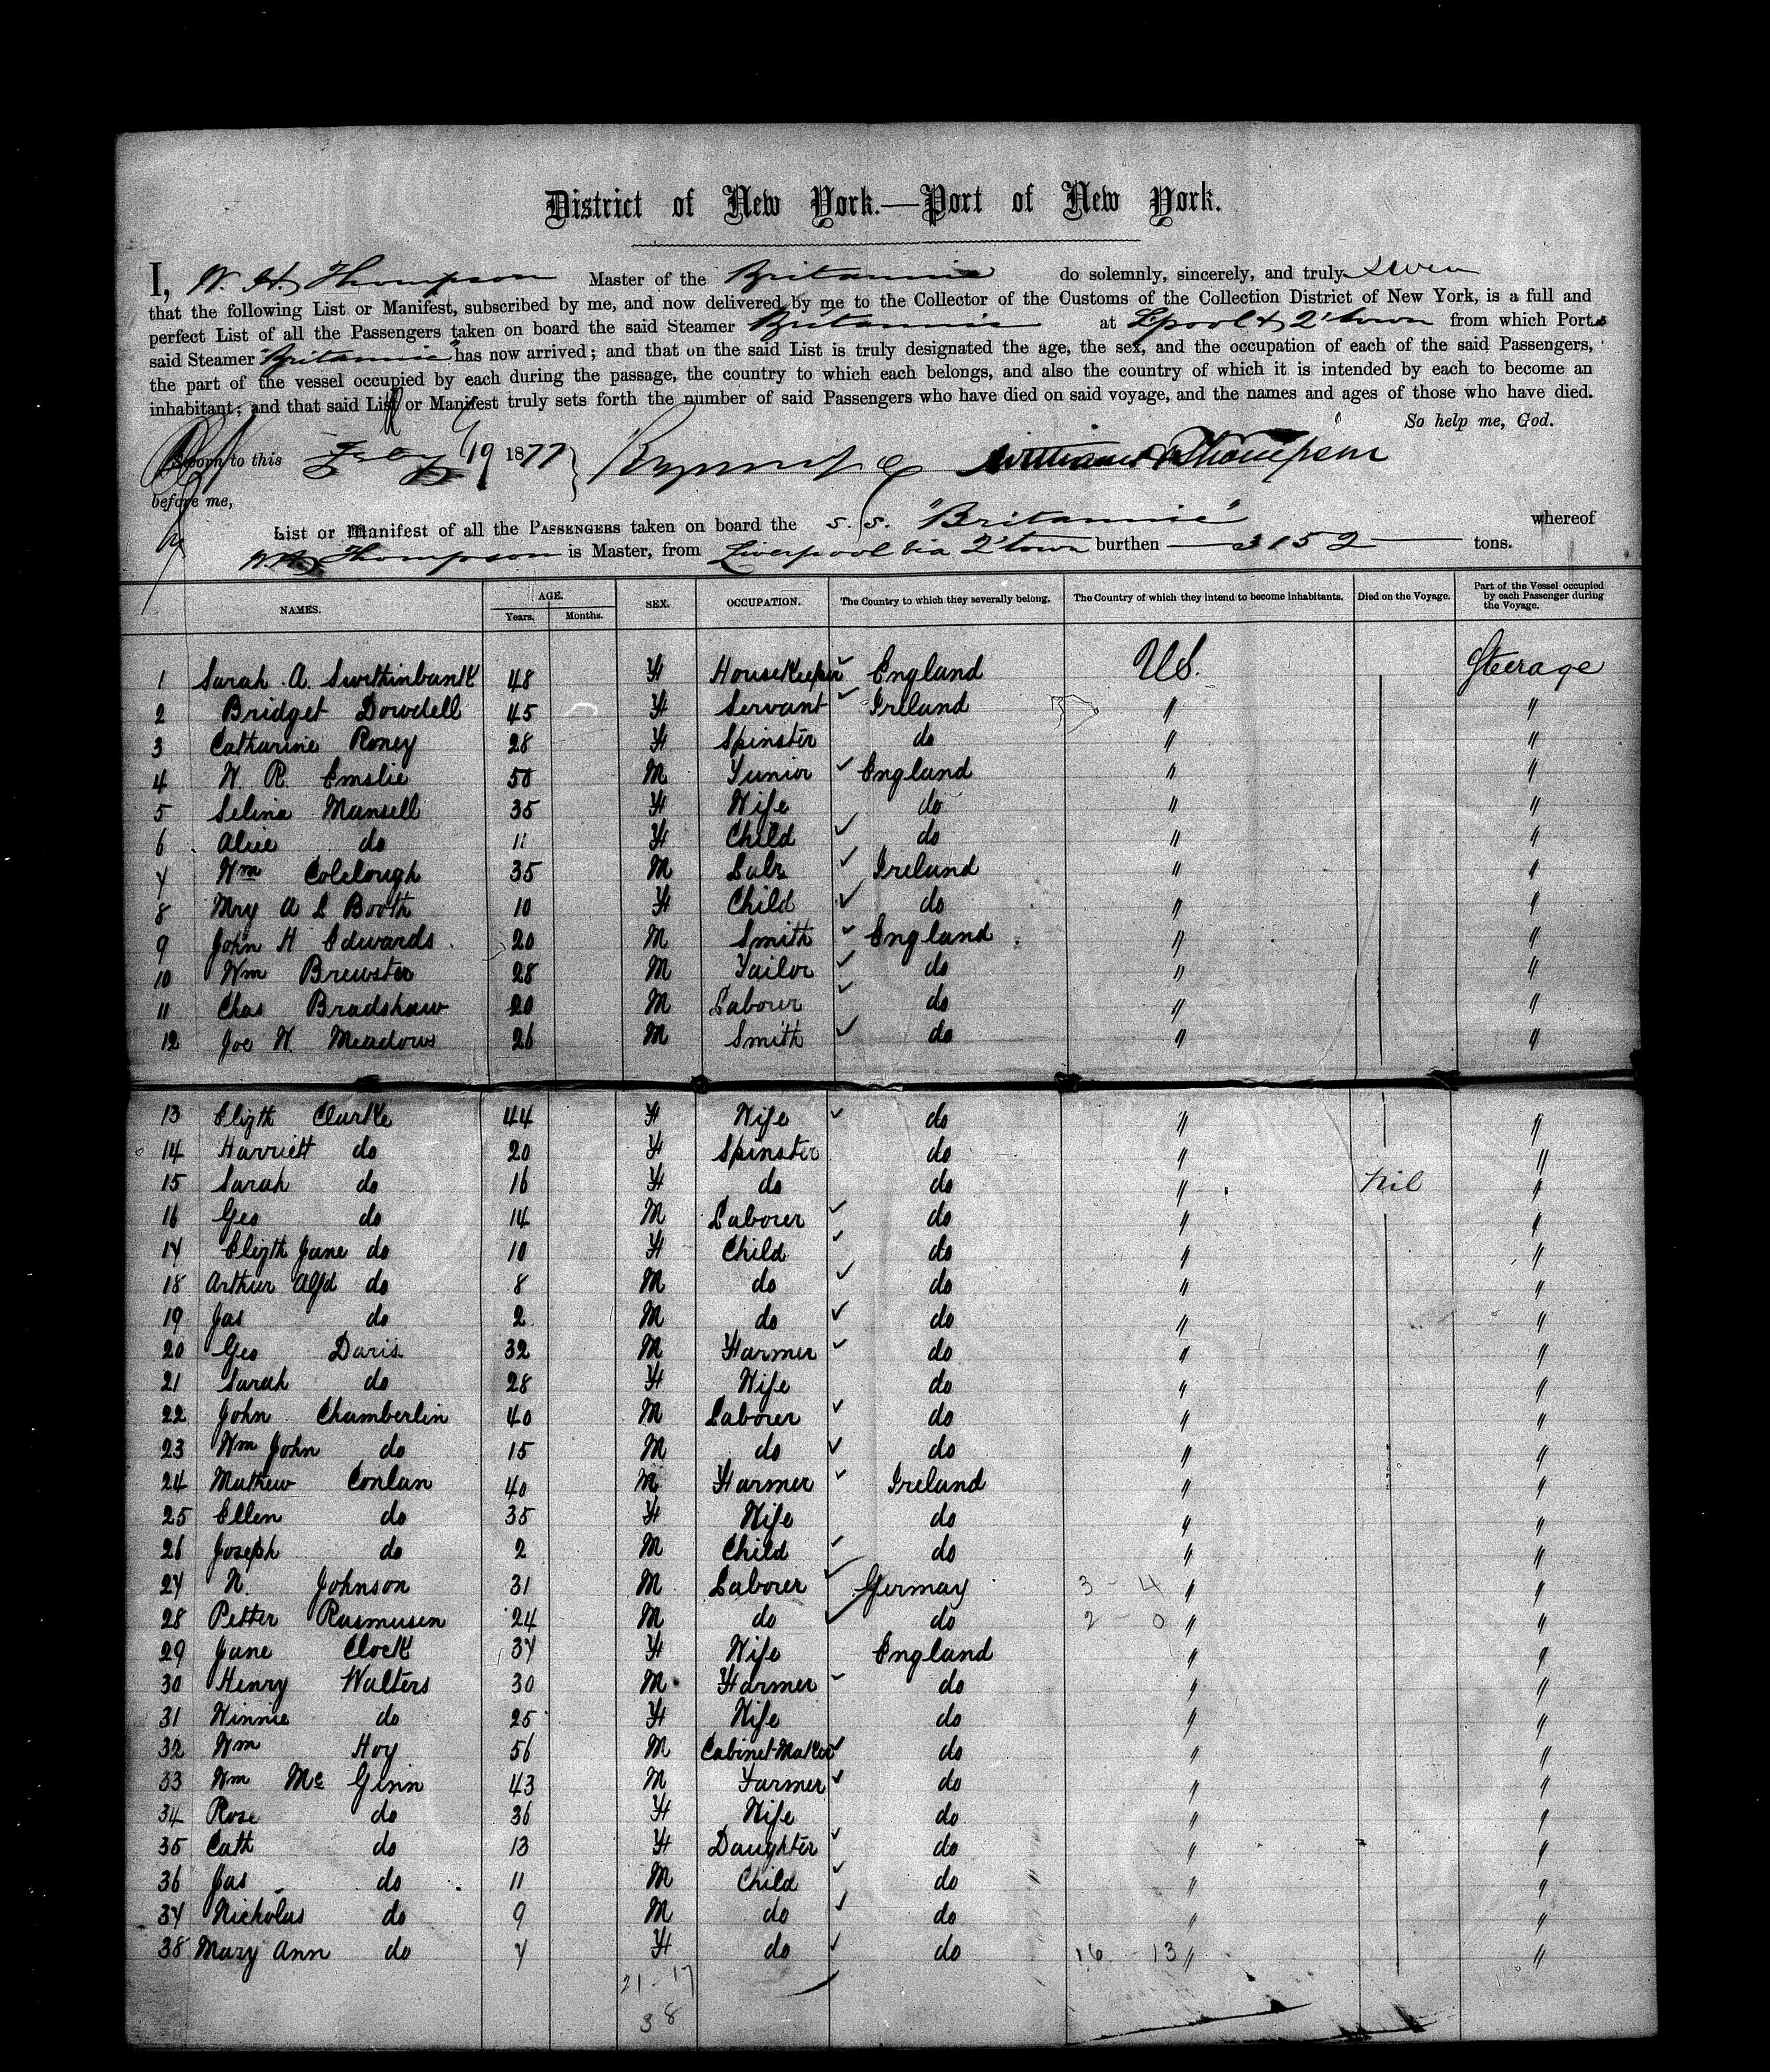 District of New York.—Port of New York.
I, W. H. Thompson Master of the Britannic do solemnly, sincerely, and truly swear
that the following List or Manifest, subscribed by me, and now delivered by me to the Collector of the Customs of the Collection District of New York, is a full and
perfect List of all the Passengers taken on board the said Steamer Britannic at L'pool & Q'town from which Ports
said Steamer "Britannic" has now arrived; and that on the said List is truly designated the age, the sex, and the occupation of each of the said Passengers,
the part of the vessel occupied by each during the passage, the country to which each belongs, and also the country of which it is intended by each to become an
inhabitant; and that said List or Manifest truly sets forth the number of said Passengers who have died on said voyage, and the names and ages of those who have died.
So help me, God.
Sworn to this Feby 19 1877 William H Thompson
before me,
List or Manifest of all the PASSENGERS taken on board the S. S. "Britannic" whereof
W. H. Thompson is Master, from Liverpool via Q'town burthen 3152 tons.
NAMES. AGE. Years. Months. SEX. OCCUPATION. The Country to which they severally belong. The Country of which they intend to become inhabitants. Died on the Voyage. Part of the Vessel occupied by each Passenger during the Voyage.
1 Sarah A. Swithinbank 48 F Housekeeper England U.S. Steerage
2 Bridget Dowdell 45 F Servant Ireland " "
3 Catharine Roney 28 F Spinster do " "
4 W. R. Emslie 50 M Junior England " "
5 Selina Mansell 35 F Wife do " "
6 Alice do 11 F Child do " "
7 Wm Colclough 35 M Labr Ireland " "
8 Mry A L Booth 10 F Child do " "
9 John H Edwards 20 M Smith England " "
10 Wm Brewster 28 M Tailor do " "
11 Chas Bradshaw 20 M Laborer do " "
12 Joe W. Meadows 26 M Smith do " "
13 Elizth Clarke 44 F Wife do " "
14 Harriett do 20 F Spinster do " "
15 Sarah do 16 F do do " Nil "
16 Geo do 14 M Laborer do " "
17 Elizth Jane do 10 F Child do " "
18 Arthur Alfd do 8 M do do " "
19 Jas do 2 M do do " "
20 Geo Davis 32 M Farmer do " "
21 Sarah do 28 F Wife do " "
22 John Chamberlin 40 M Laborer do " "
23 Wm John do 15 M do do " "
24 Mathew Conlan 40 M Farmer Ireland " "
25 Ellen do 35 F Wife do " "
26 Joseph do 2 M Child do " "
27 N. Johnson 31 M Laborer Germay 3 - 4 " "
28 Petter Rasmusen 24 M do do 2 - 0 " "
29 Jane Clock 37 F Wife England " "
30 Henry Walters 30 M Farmer do " "
31 Winnie do 25 F Wife do " "
32 Wm Hoy 56 M Cabinet-Maker do " "
33 Wm Mc Ginn 43 M Farmer do " "
34 Rose do 36 F Wife do " "
35 Cath do 13 F Daughter do " "
36 Jas do 11 M Child do " "
37 Nicholas do 9 M do do " "
38 Mary Ann do 7 F do do 16 - 13 " "
21 - 17
38